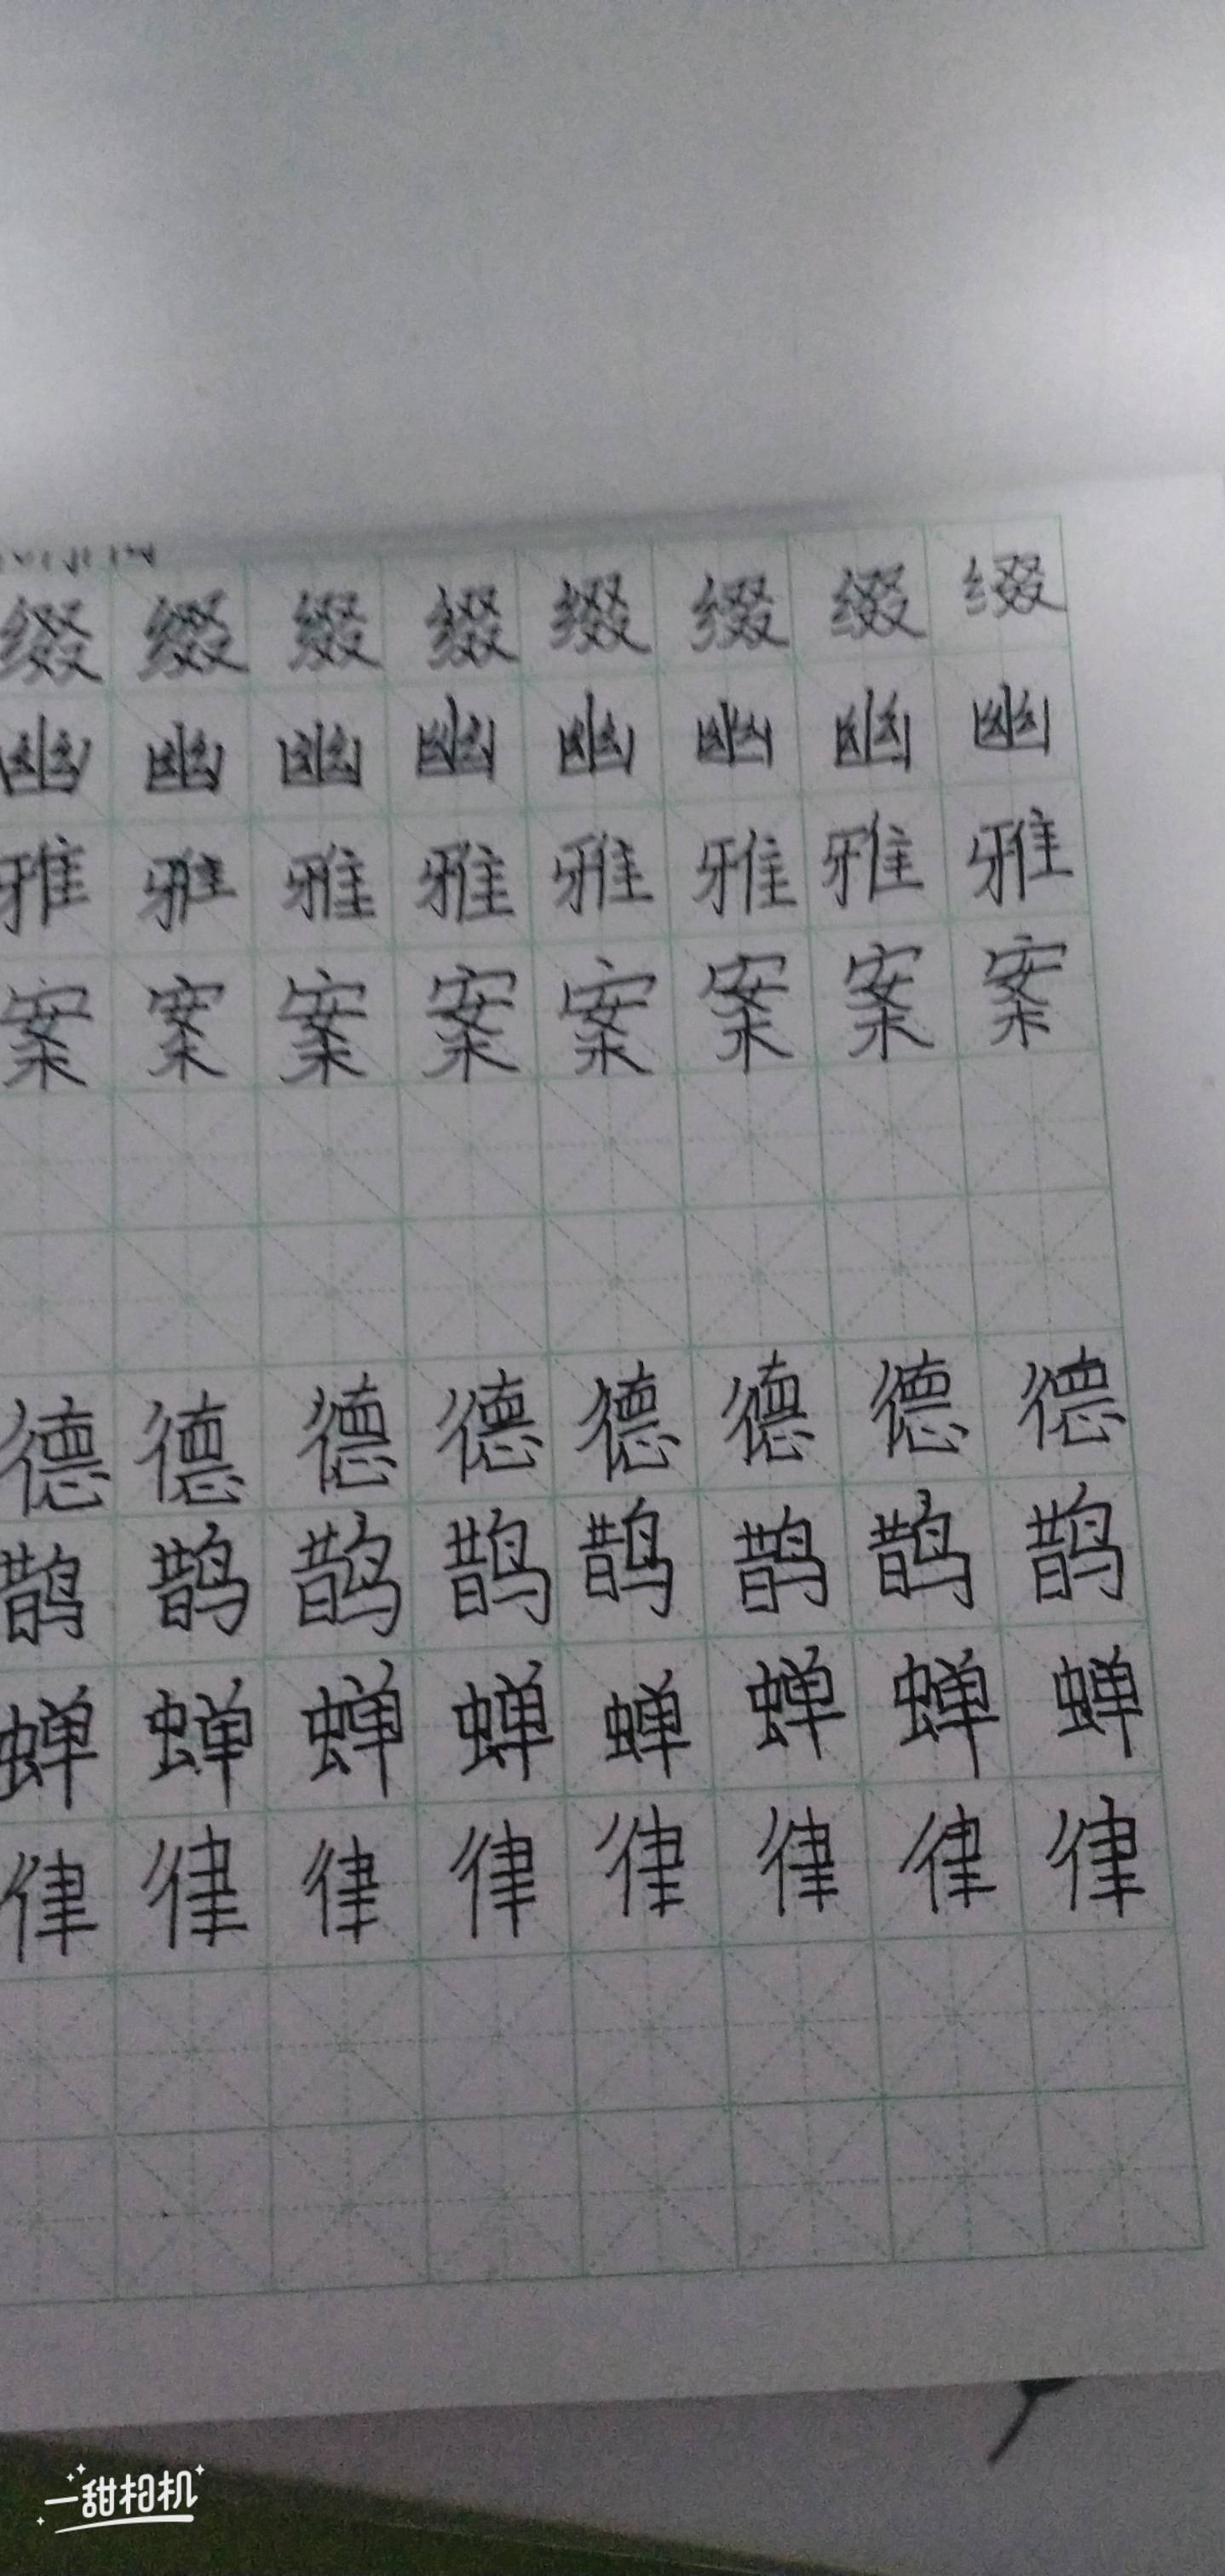 缀缀缀缀缀缀缀缀
幽幽幽幽幽幽幽幽
雅雅雅雅雅雅雅雅
案案案案案案案案
德德德德德德德德
鹊鹊鹊鹊鹊鹊鹊鹊
蝉蝉蝉蝉蝉蝉蝉蝉
律律律律律律律律
一甜相机